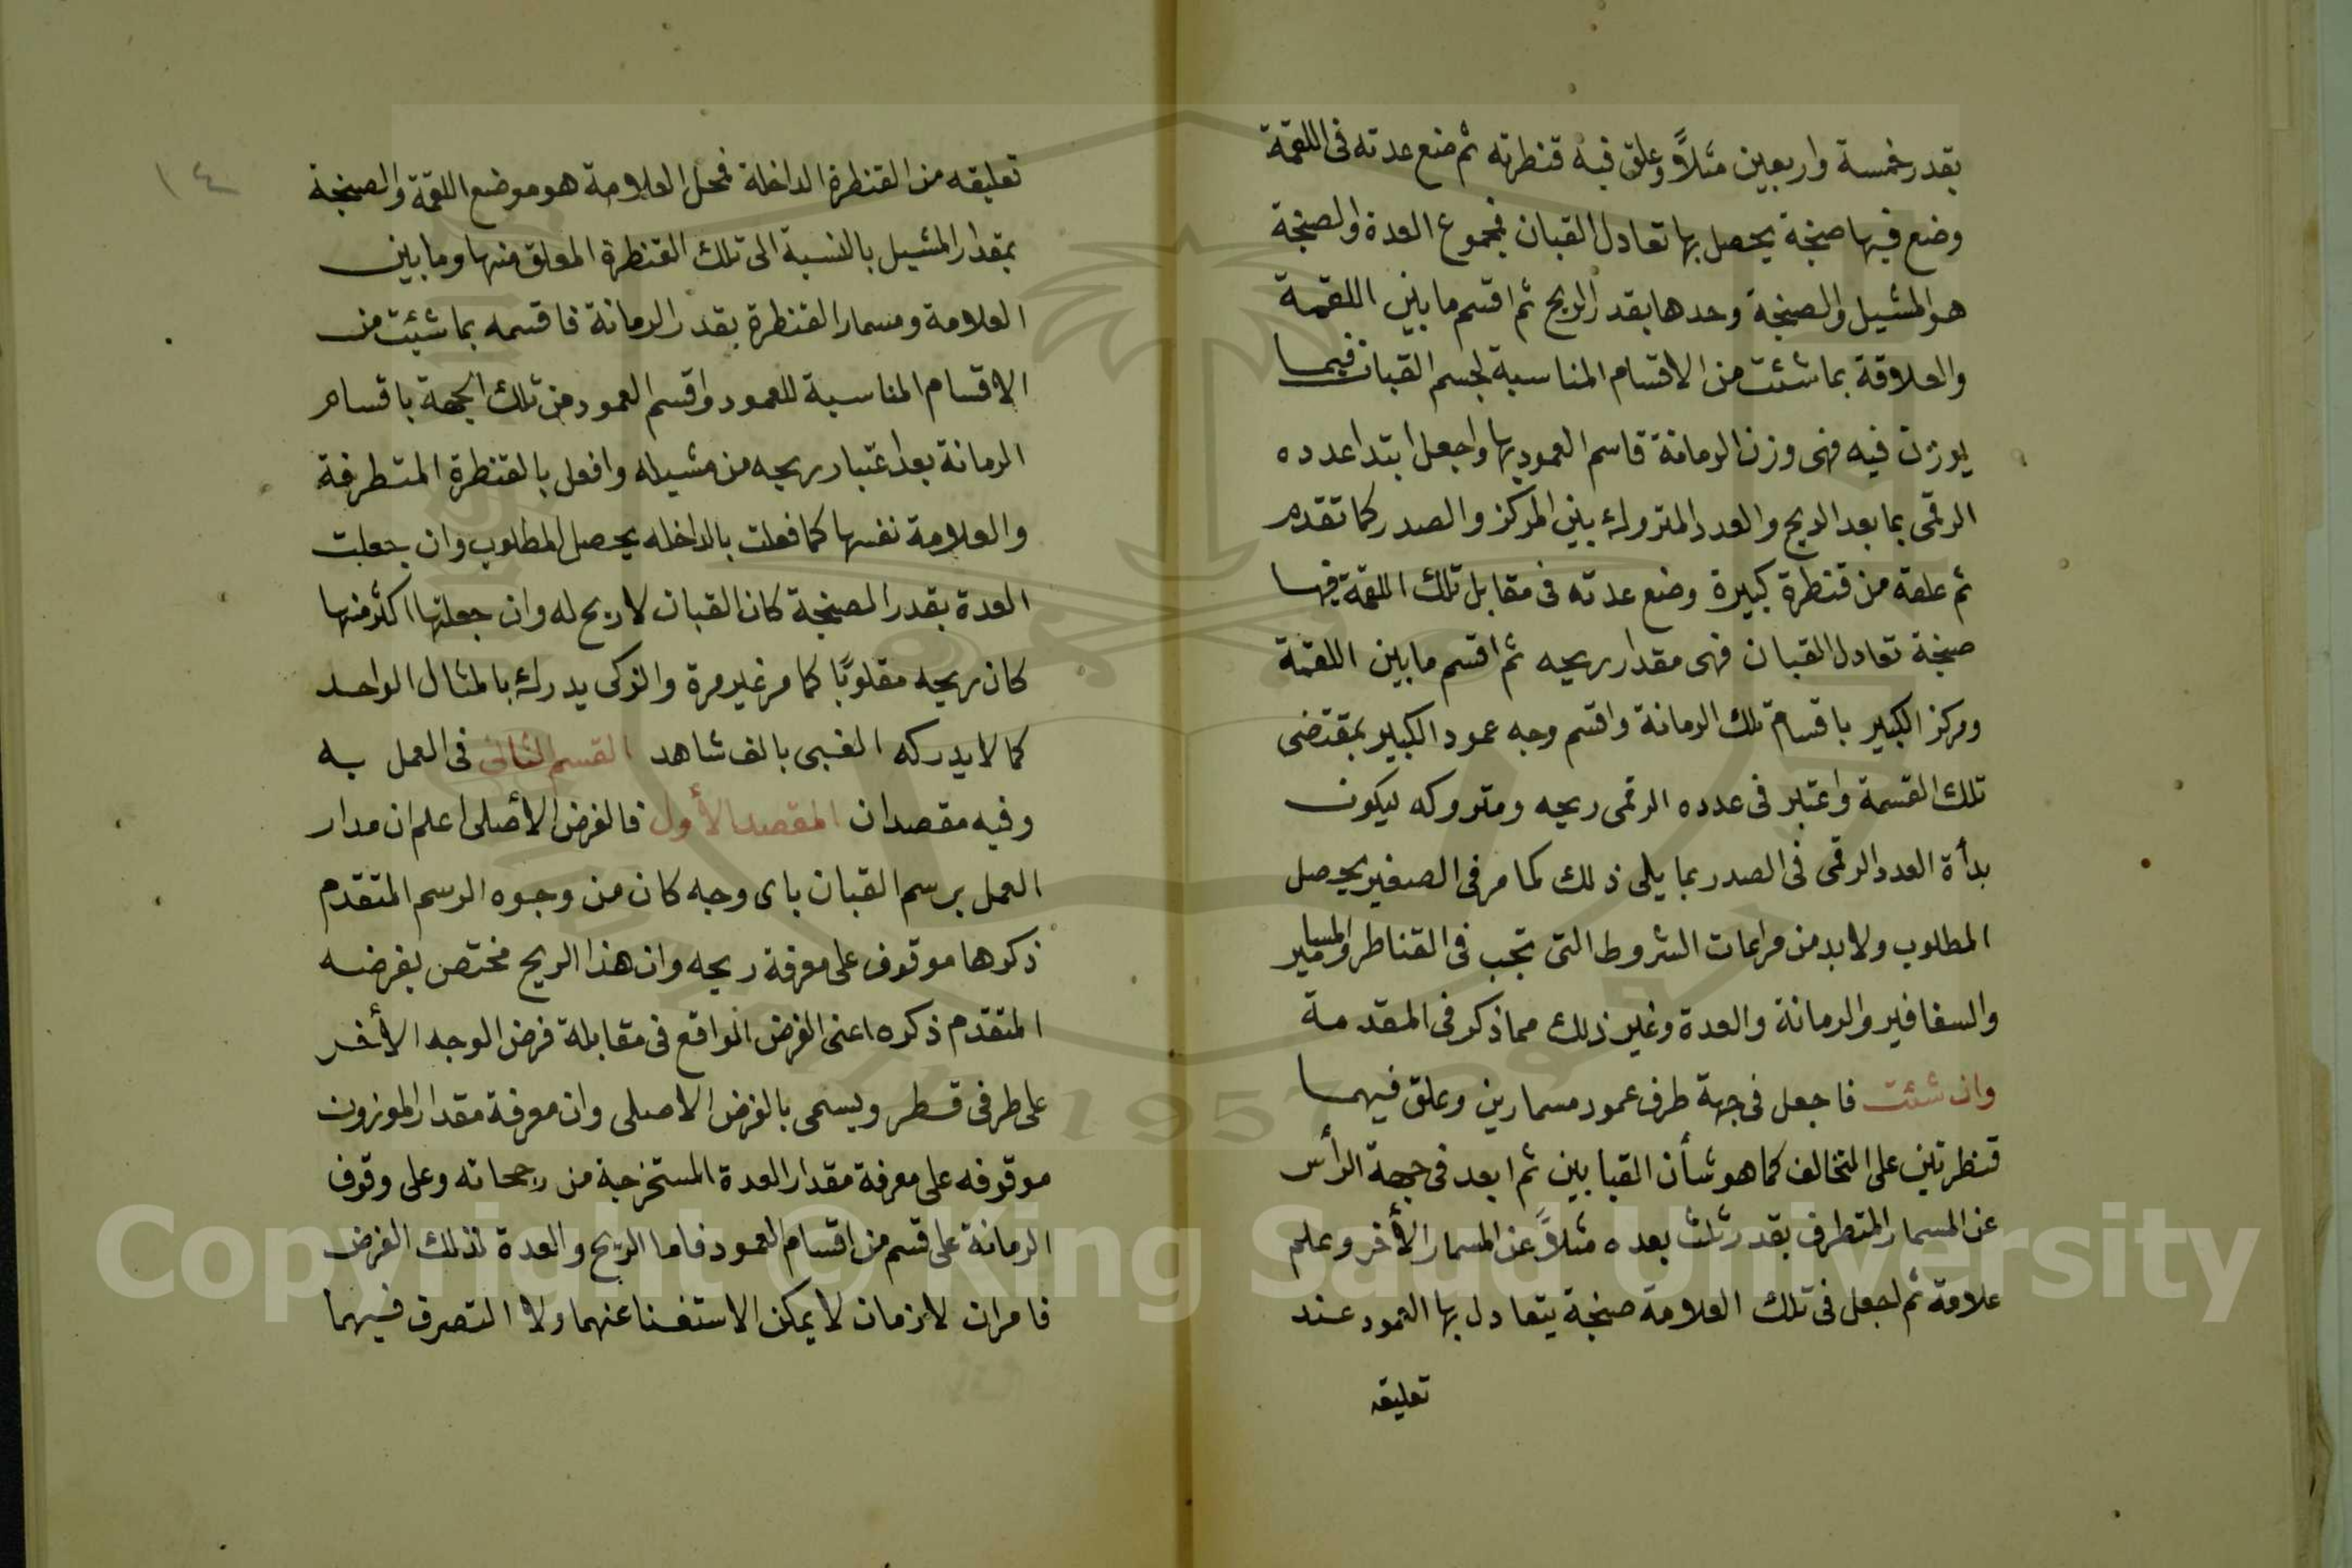 بقدر خمسة واربعين مثلاً وعلق فيه قنطرته ثم ضع عدته فى اللقمة
وضع فيها صنجة يحصل بها تعادل القبان فمجموع العدة والصنجة
هو المشيل والصنجة وحدها بقدر الريح ثم اقسم ما بين اللقمة
والعلاقة بما شئت من الاقسام المناسبة لجسم القبان فيما
يوزن فيه فهى وزن الرمانة قاسم العمود بها واجعل ابتدا عدده
الرقمى بما بعد الريح والعدد المتروك بين المركز والصدر كما تقدم
ثم علقه من قنطرة كبيرة وضع عدته فى مقابل تلك اللقمة فيها
صنجة تعادل القبان فهى مقدار ريحه ثم اقسم ما بين اللقمة
ومركز الكبير باقسام تلك الرمانة واقسم وجه عمود الكبير بمقتضى
تلك القسمة واعتبر فى عدده الرقمى ريحه ومتروكه ليكون
بدأة العدد الرقمى فى الصدر بما يلى ذلك كما مر فى الصغير يحصل
المطلوب ولا بد من مراعات الشروط التى تجب فى القناطر والمسامير
والسفافير والرمانة والعدة وغير ذلك مما ذكر فى المقدمة
وان شئت فاجعل فى جهة طرف عمود مسمارين وعلق فيهما
قنطرتين على التخالف كما هو شأن القبابين ثم ابعد فى جهة الرأس
عن المسمار المتطرف بقدر ثلث بعده مثلاً عن المسمار الأخر وعلم
علامة ثم اجعل فى تلك العلامة صنجة يتعادل بها العمود عند
تعليقه
١٤
تعليقه من القنطرة الداخلة فمحل العلامة هو موضع اللقمة والصنجة
بمقدار المشيل بالنسبة الى تلك القنطرة المعلق منها وما بين
العلامة ومسمار القنطرة بقدر الرمانة فاقسمه بما شئت من
الاقسام المناسبة للعمود واقسم العمود من تلك الجهة باقسام
الرمانة بعد اعتبار ريحه من مشيله وافعل بالقنطرة المتطرفة
والعلامة نفسها كما فعلت بالداخله يحصل المطلوب وان جعلت
العدة بقدر الصنجة كان القبان لا ريح له وان جعلتها اكثر منها
كان ريحه مقلوبًا كما مر غير مرة والزكى يدرك بالمثال الواحد
كما لا يدركه الغبى بالف شاهد القسم الثانى فى العمل به
وفيه مقصدان المقصد الأول فالفرض الأصلى اعلم ان مدار
العمل برسم القبان باى وجه كان من وجوه الرسم المتقدم
ذكرها موقوف على معرفة ريحه وان هذا الريح مختص بفرضه
المتقدم ذكره اعنى الفرض الواقع فى مقابلة فرض الوجه الأخر
على طرفى قطر ويسمى بالفرض الاصلى وان معرفة مقدار الموزون
موقوفه على معرفة مقدار العدة المستخرجة من رجحاته وعلى وقوف
الرمانة على قسم من اقسام العمود فاما الريح والعدة لذلك الفرض
فامران لازمان لا يمكن الاستغنا عنهما ولا التصرف فيهما
Copyright © King Saud University
1957